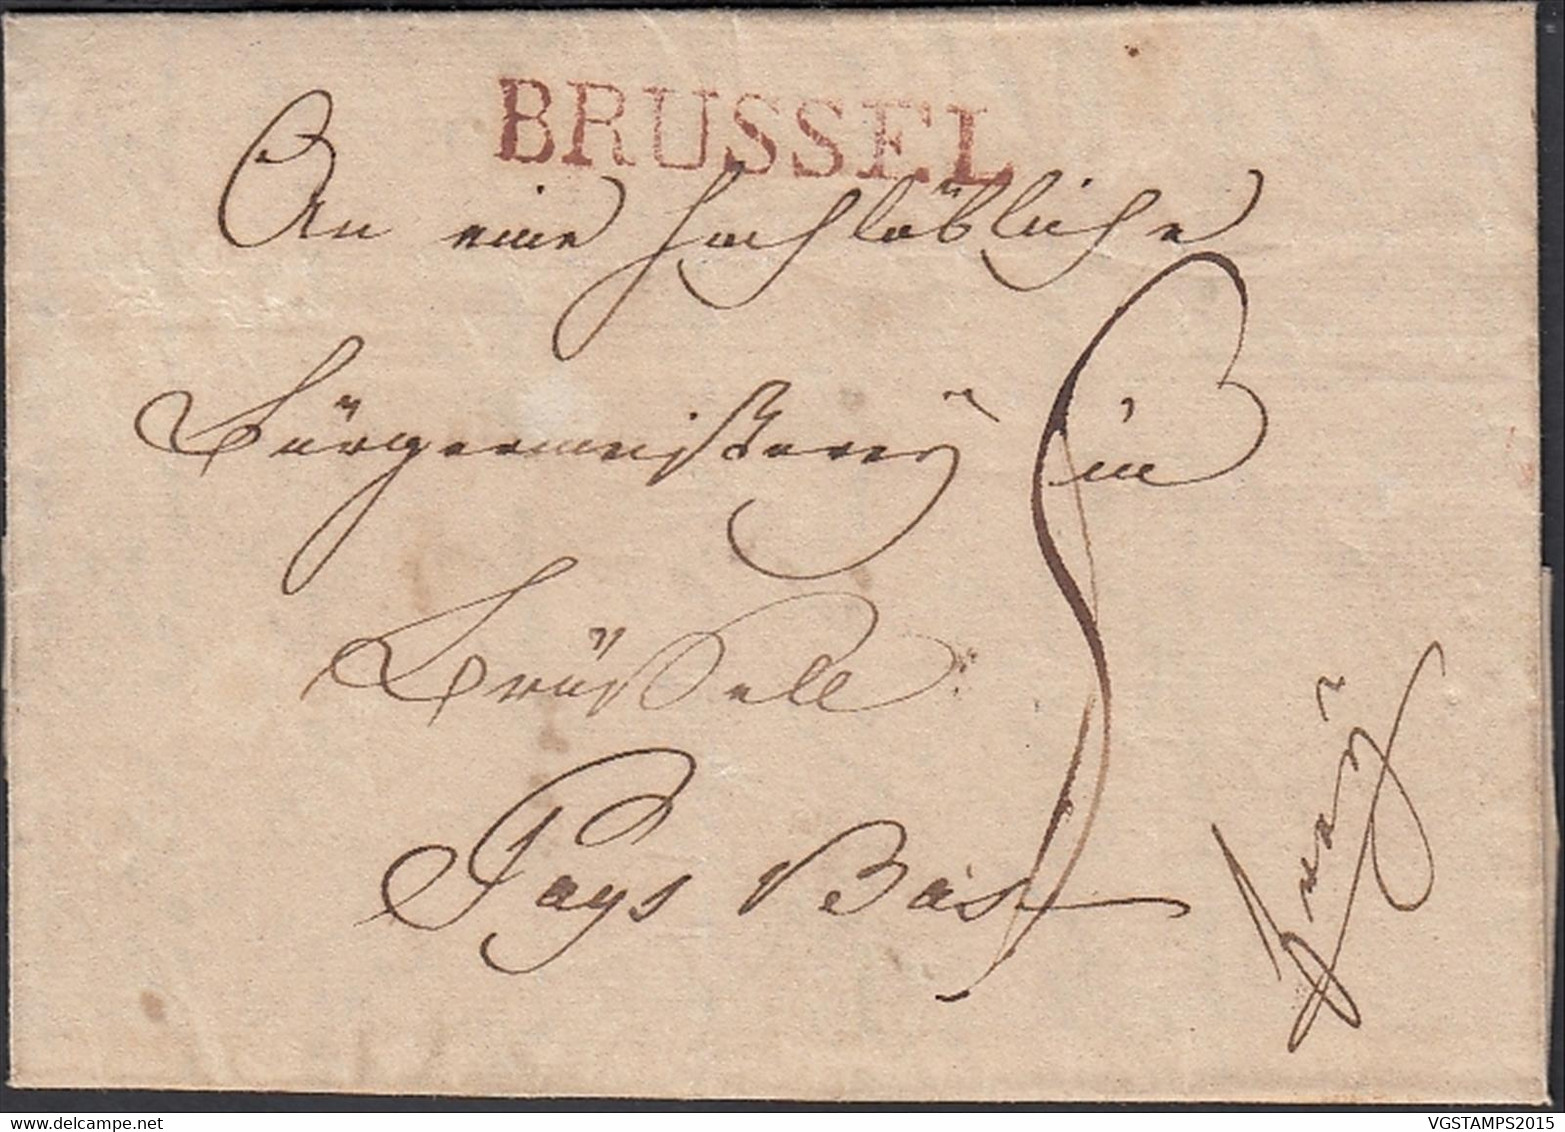 BRUSSEL
An eine hochlöbliche
Bürgermeisterey in
Brüssell
Pays Bas
franz
VGSTAMPS2015